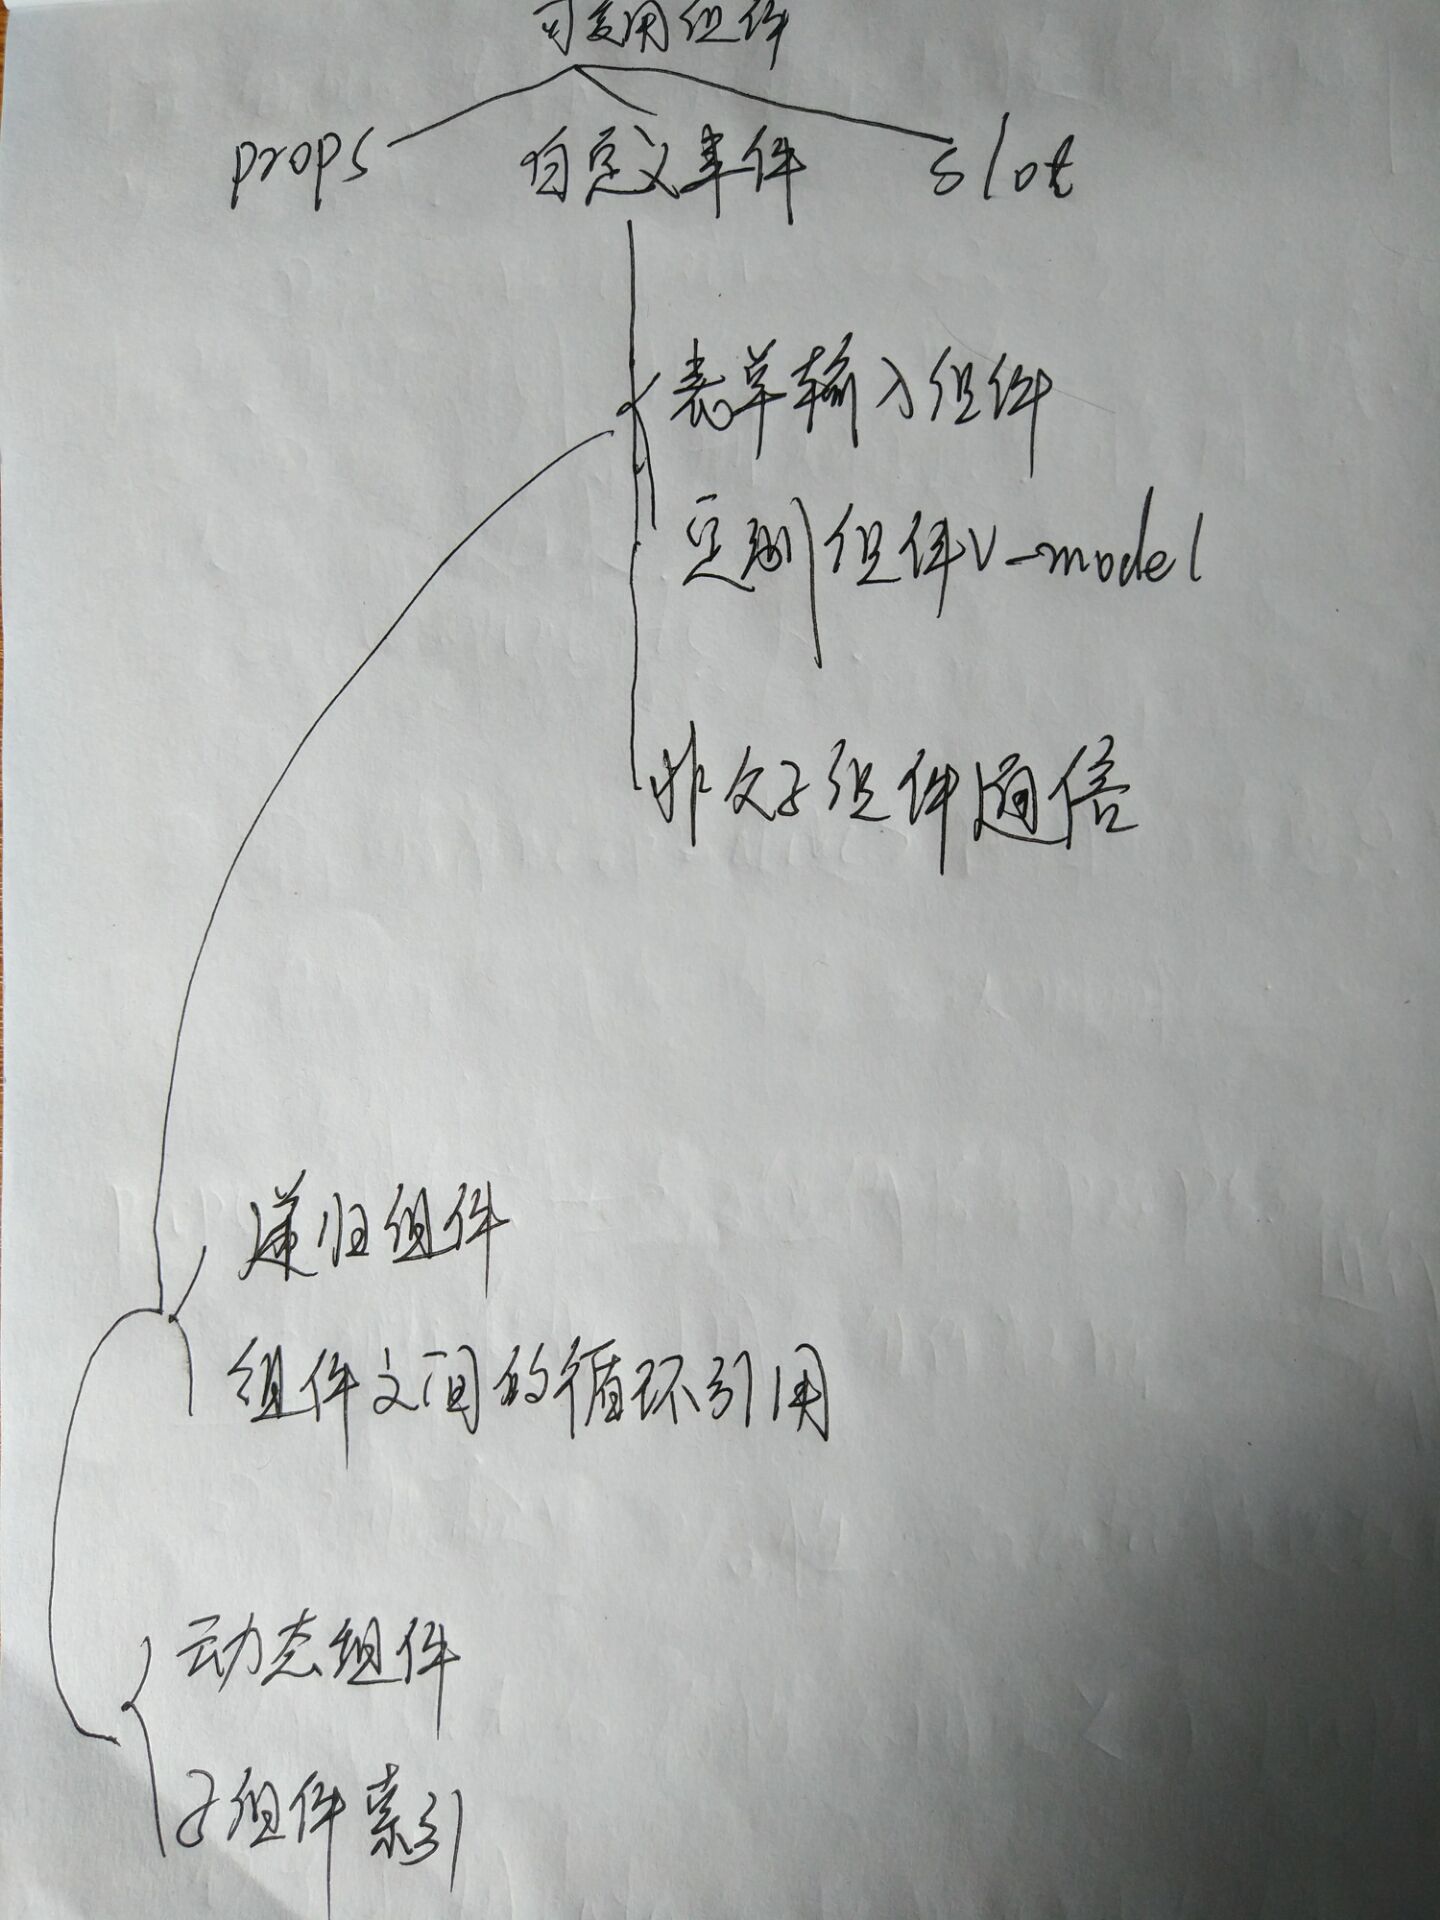 可复用组件
props 自定义事件 slot
表单输入组件
定制组件v-model
非父子组件通信
递归组件
组件之间的循环引用
动态组件
子组件索引